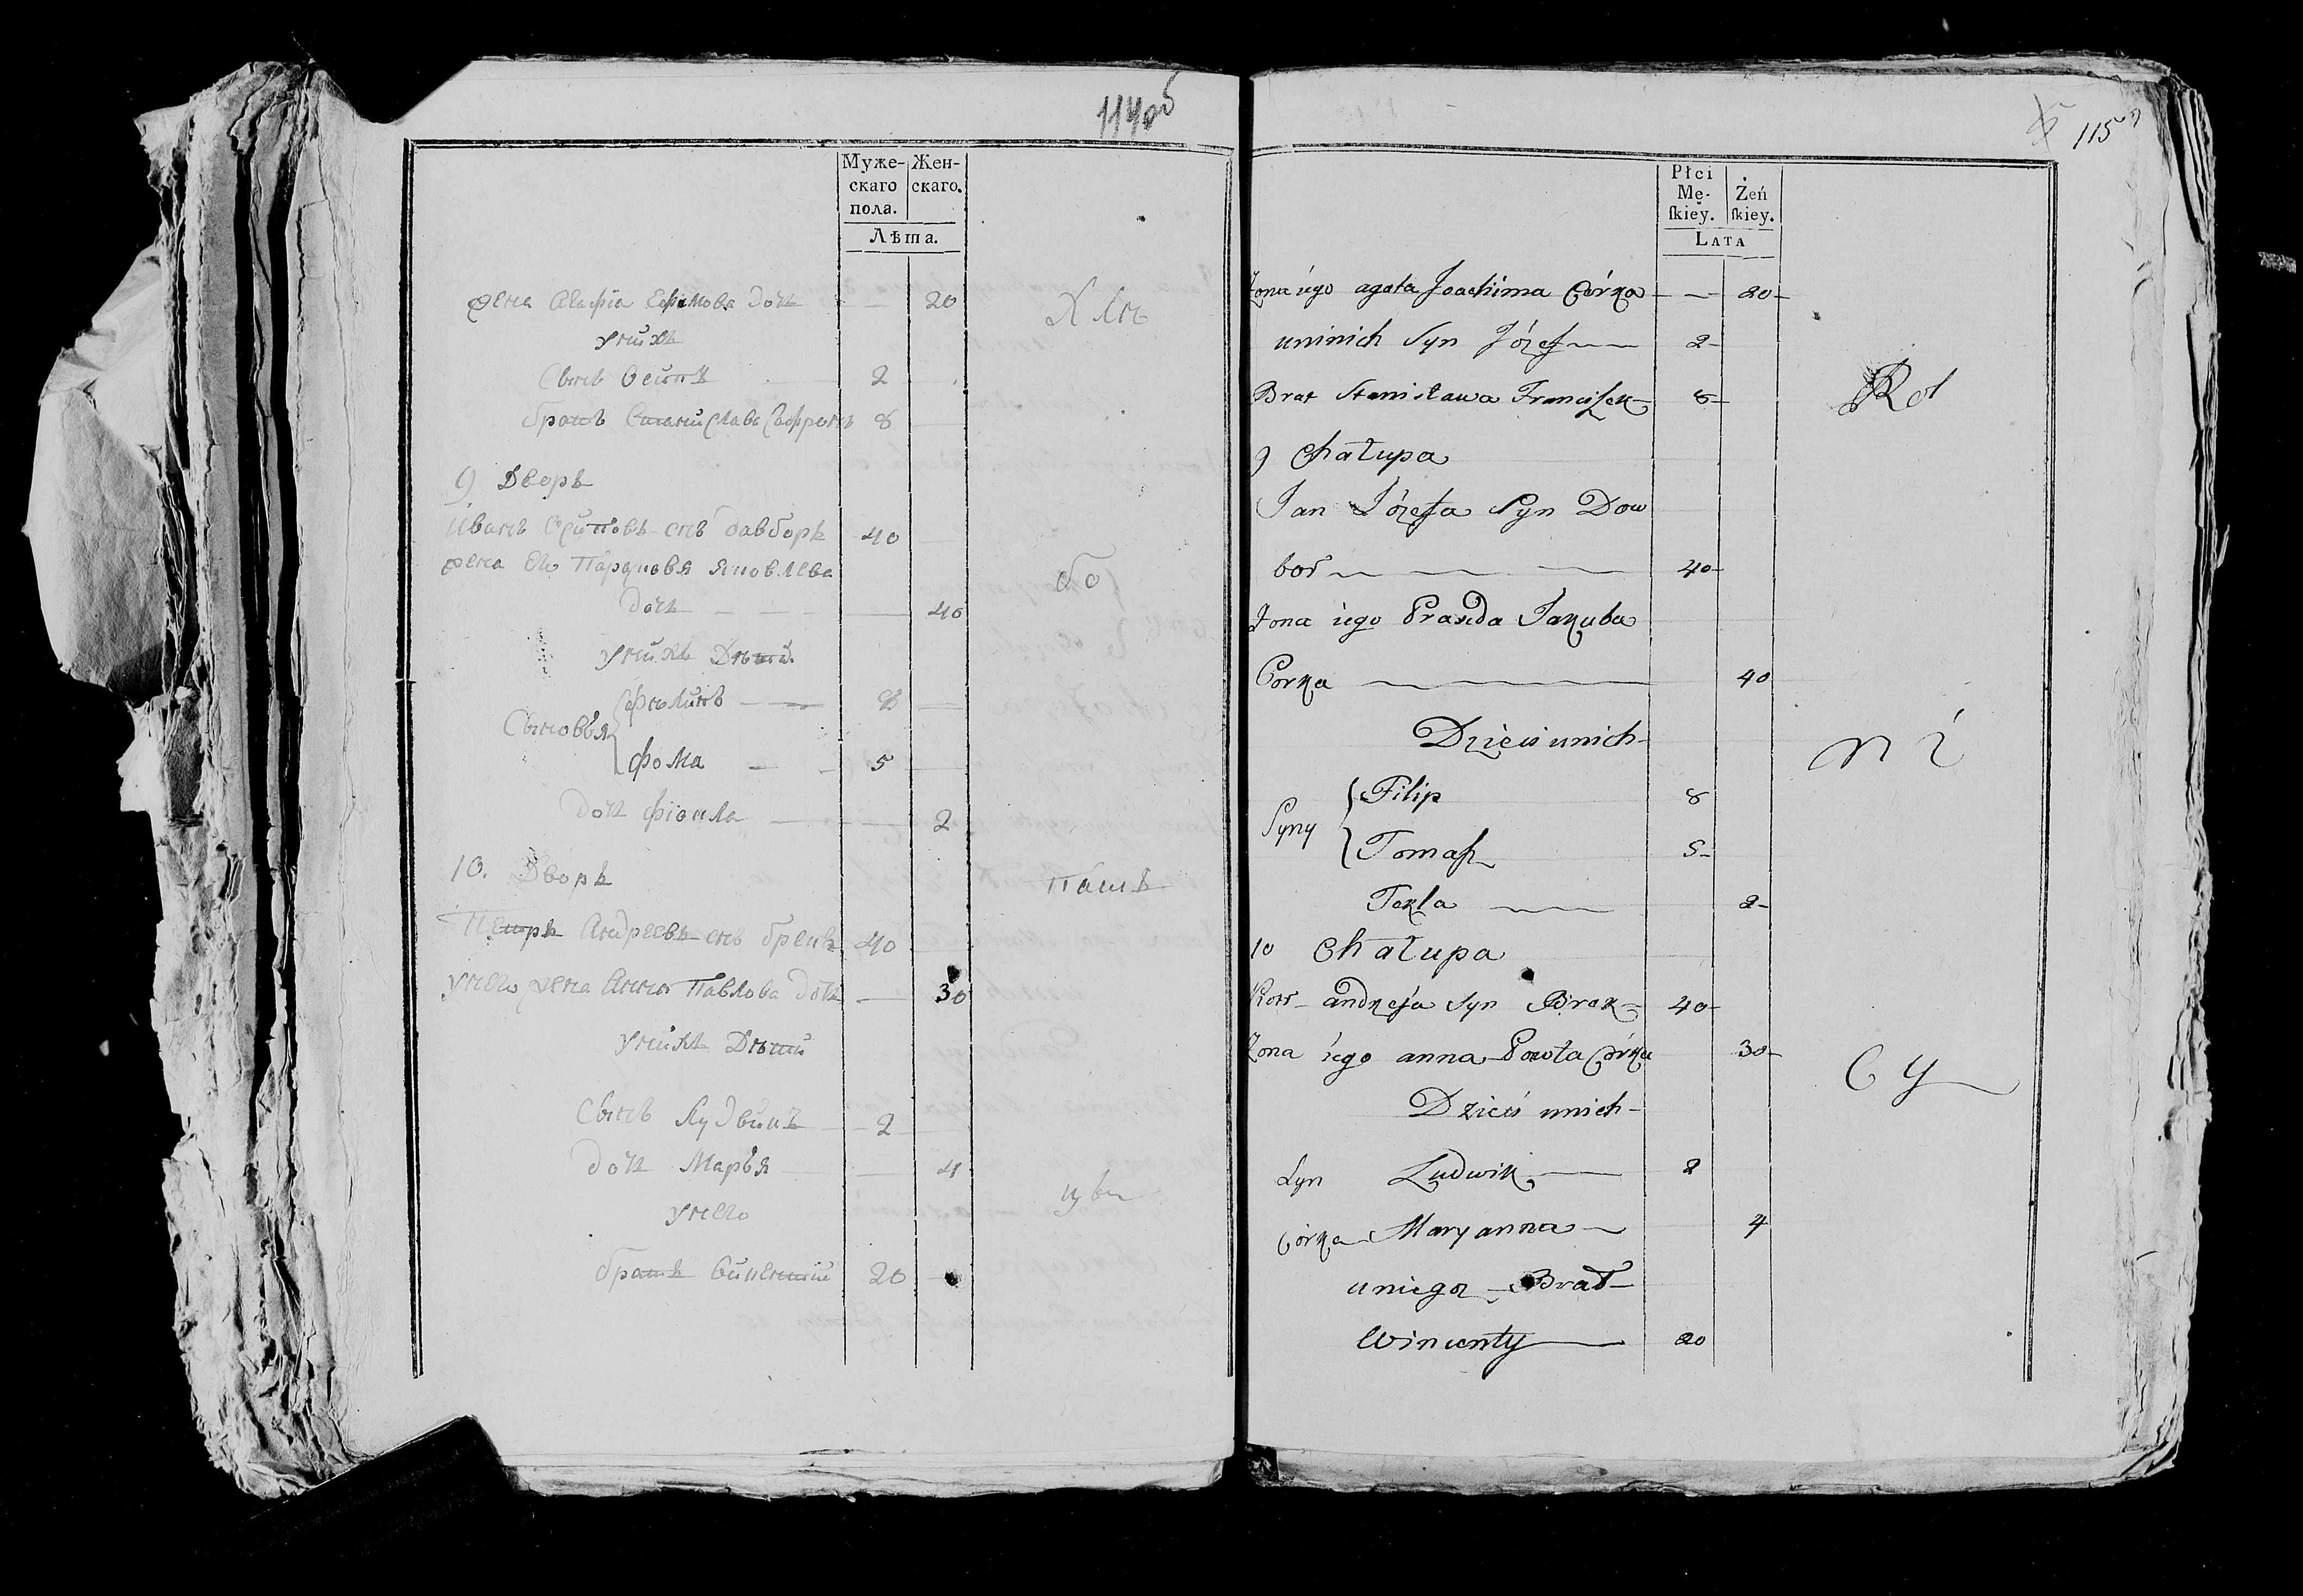 114 об
Муже-
скаго
пола.
Жен-
скаго.
Лѣта.
жена Агафіа Ефимова дочь — 20
униХъ
Сынъ Осипъ 2
братъ Станислава 8
Хлѣ
9 Дворъ
Иванъ Осиповъ снъ Давборъ 40
жена Его Яковлева
дочь — 40
бо
униХъ Дѣти
Сыновья { Филипъ — 8
Фома — 5
дочь Фіокла — 2
10. Дворъ
паш ѣ
Петръ Андреевъ снъ брекъ 40
унего жена Анна Павлова дочь — 30
униХъ Дѣти
Сынъ Лудвикъ 2
дочь Марья 4
унего
братъ Викентій 20
115
Płci
Mę-
ſkiey.
Żeń
ſkiey.
LATA
Żona iego agata Joachima Córka — 20
uninich Syn Józef — 2
Brat Stanisława Franciſzek 8
Rol
9 Chałupa
Jan Józefa Syn Dow
bor — 40
Żona iego Praxeda Jakuba
Corka — 40
Dzieci unich
n i
Syny { Filip 8
Tomaſz 5
Tekla — 2
10 Chałupa
Piotr andrzeja Syn Brek 40
Żona iego anna Pawła Córka 30
Dzieci unich
c y
Syn Ludwik — 2
Córka Maryanna — 4
uniego Brat
Wincenty — 20